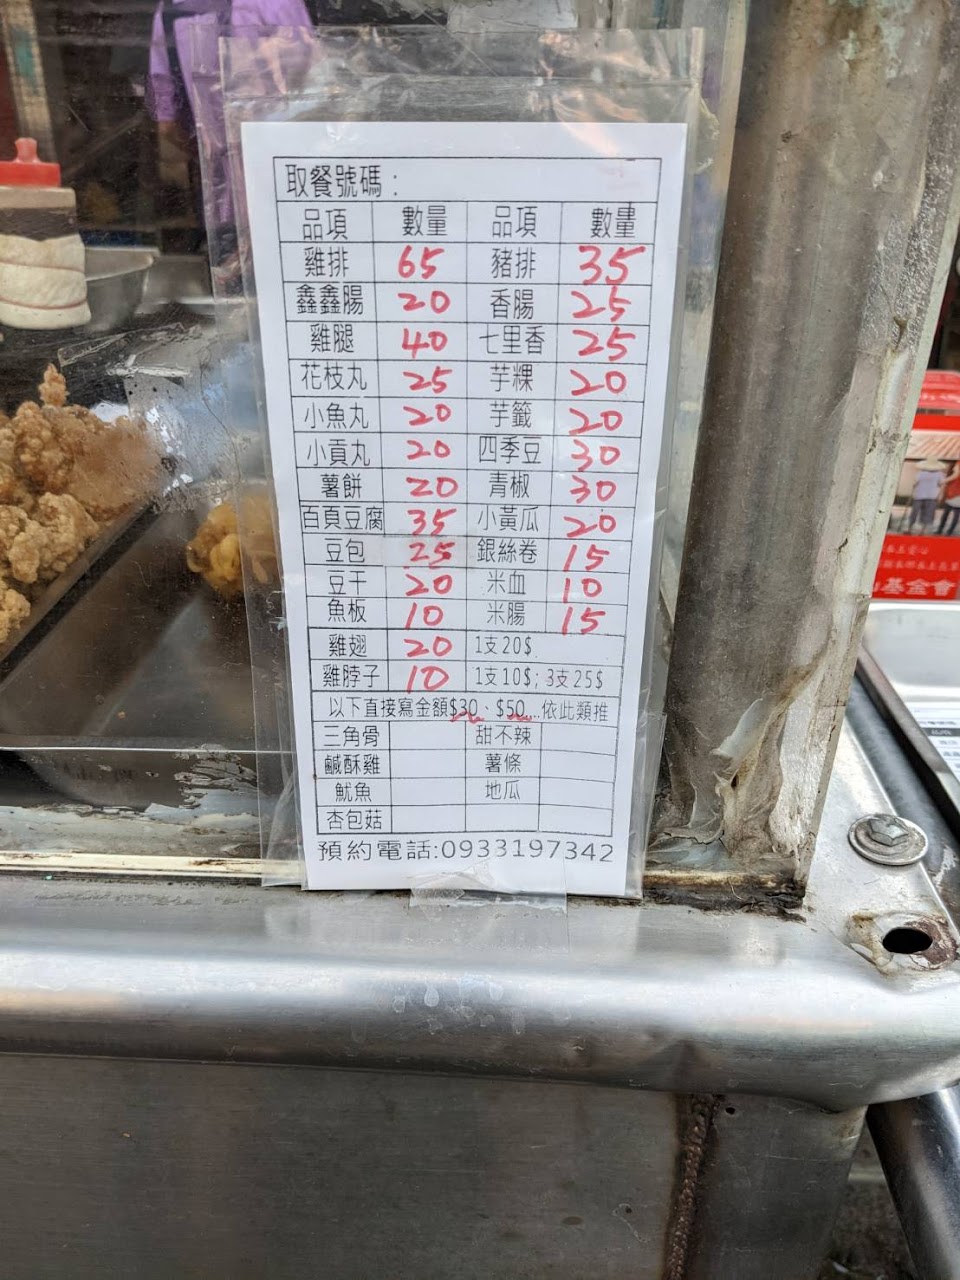 取餐號碼：
品項 數量 品項 數量
雞排 65 豬排 35
鑫鑫腸 20 香腸 25
雞腿 40 七里香 25
花枝丸 25 芋粿 20
小魚丸 20 芋籤 20
小貢丸 20 四季豆 30
薯餅 20 青椒 30
百頁豆腐 35 小黃瓜 20
豆包 25 銀絲卷 15
豆干 20 米血 10
魚板 10 米腸 15
雞翅 20 1支20$
雞脖子 10 1支10$; 3支25$
以下直接寫金額$30、$50...依此類推
三角骨 甜不辣
鹹酥雞 薯條
魷魚 地瓜
杏包菇
預約電話:0933197342
基金會